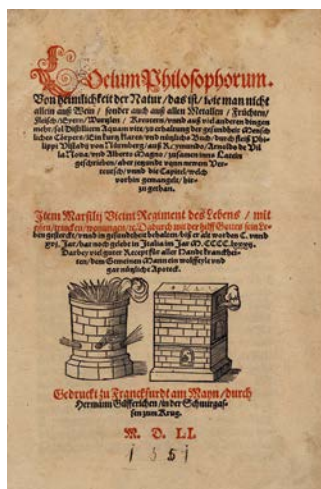 Coelum Philosophorum.
Von heimlichkeit der Natur/das ist/wie man nicht
allein auß Wein / sonder auch auß allen Metallen / Früchten/
Fleisch/Eyern/Wurtzlen / Kreutern/vnnd auß viel anderen dingen
mehr/sol Distilliern Aquam vite/zu erhaltung der gesundheit Mensch
lichen Cörpers/Ein kurtz Klares/vnd nützlichs Buch/durch fleiß Phi-
lippi Vlstadij von Nürmberg/auß Raymundo/Arnoldo de Vil
la Noua/vnd Alberto Magno/zusamen inns Latein
geschrieben/aber jetzunde vonn newem Ver-
teutsch/vnnd die Capitel/welch
vorhin gemangelt/hin-
zu gethan.
Item Marsilij Ficini Regiment des Lebens / mit
essen/trincken/wonungen/rc. dadurch mit der hülff Gottes sein Le-
ben gesterckt/vnnd in gesundtheit behalten/biß er alt worden C. vnnd
xvj. Jar/hat noch gelebt in Italia im Jar M. CCCC.
Darbey viel guter Recept für aller Hande kranckhei-
ten/dem Gemeinen Mann ein wolffeyle vnd
gar nützliche Apoteck.
Gedruckt zu Franckfurdt am Mayn/durch
Hermann Gülfferichen/in der Schnurgas-
sen zum Krug.
M. D. LI.
1551